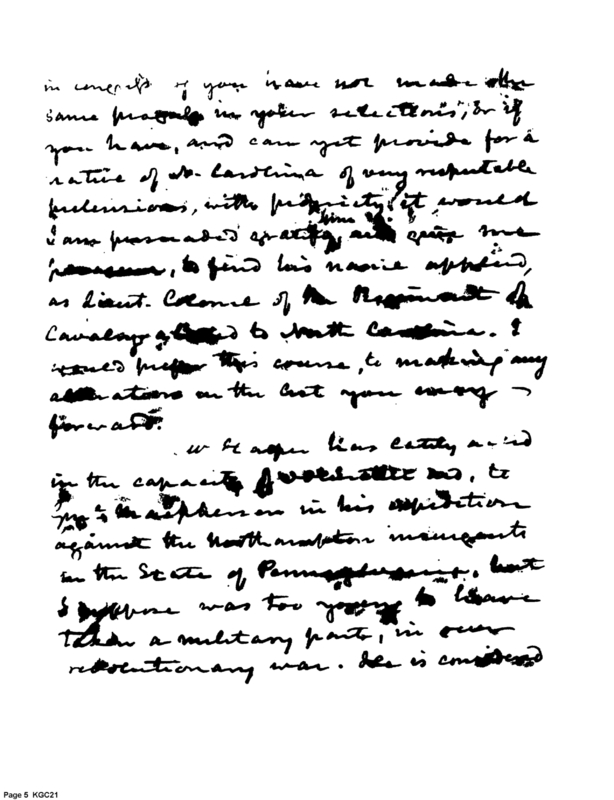 in consequence if you have not made the
same progress in your selections, or if
you have, and can yet provide for a
native of No. Carolina of very respectable
pretensions, with propriety, it would
I am persuaded gratify him & give me
pleasure, to find his name applied,
as Lieut. Colonel of the Regiment of
Cavalry allotted to North Carolina. I
would prefer this course, to making any
alterations in the list you may
forward.
has lately acted
in the capacity of volunteer aid, to
Macpherson in his expedition
against the Northampton insurgents
in the State of Pennsylvania, but
I suppose was too young to have
taken a military part, in our
revolutionary war. He is considered
Page 5 KGC21